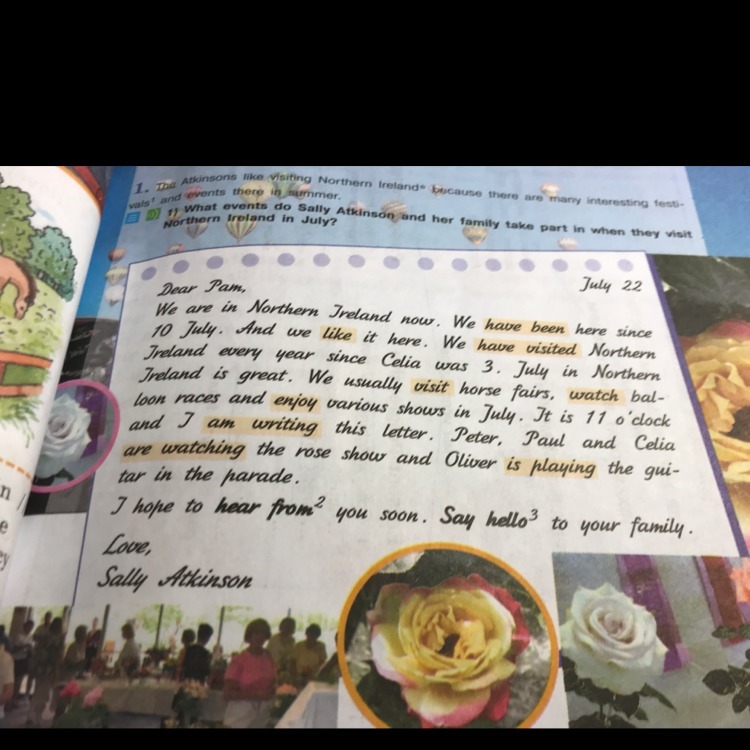 1. The Atkinsons like visiting Northern Ireland* because there are many interesting festi-
vals¹ and events there in summer.
1) What events do Sally Atkinson and her family take part in when they visit
Northern Ireland in July?
Dear Pam,
July 22
We are in Northern Ireland now. We have been here since
10 July. And we like it here. We have visited Northern
Ireland every year since Celia was 3. July in Northern
Ireland is great. We usually visit horse fairs, watch bal-
loon races and enjoy various shows in July. It is 11 o'clock
and I am writing this letter. Peter, Paul and Celia
are watching the rose show and Oliver is playing the gui-
tar in the parade.
I hope to hear from² you soon. Say hello³ to your family.
Love,
Sally Atkinson